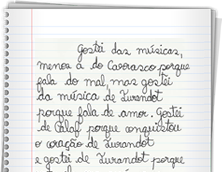 Gostei das músicas,
menos a do Carrasco porque
fala do mal, mas gostei
da música de Turandot
porque fala de amor. Gostei
de Calaf porque conquistou
o coração de Turandot
e gostei de Turandot porque